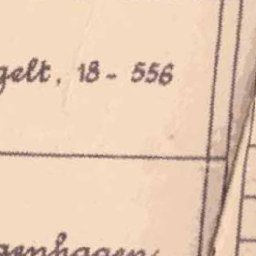 gelt, 18 - 556
genhagen,